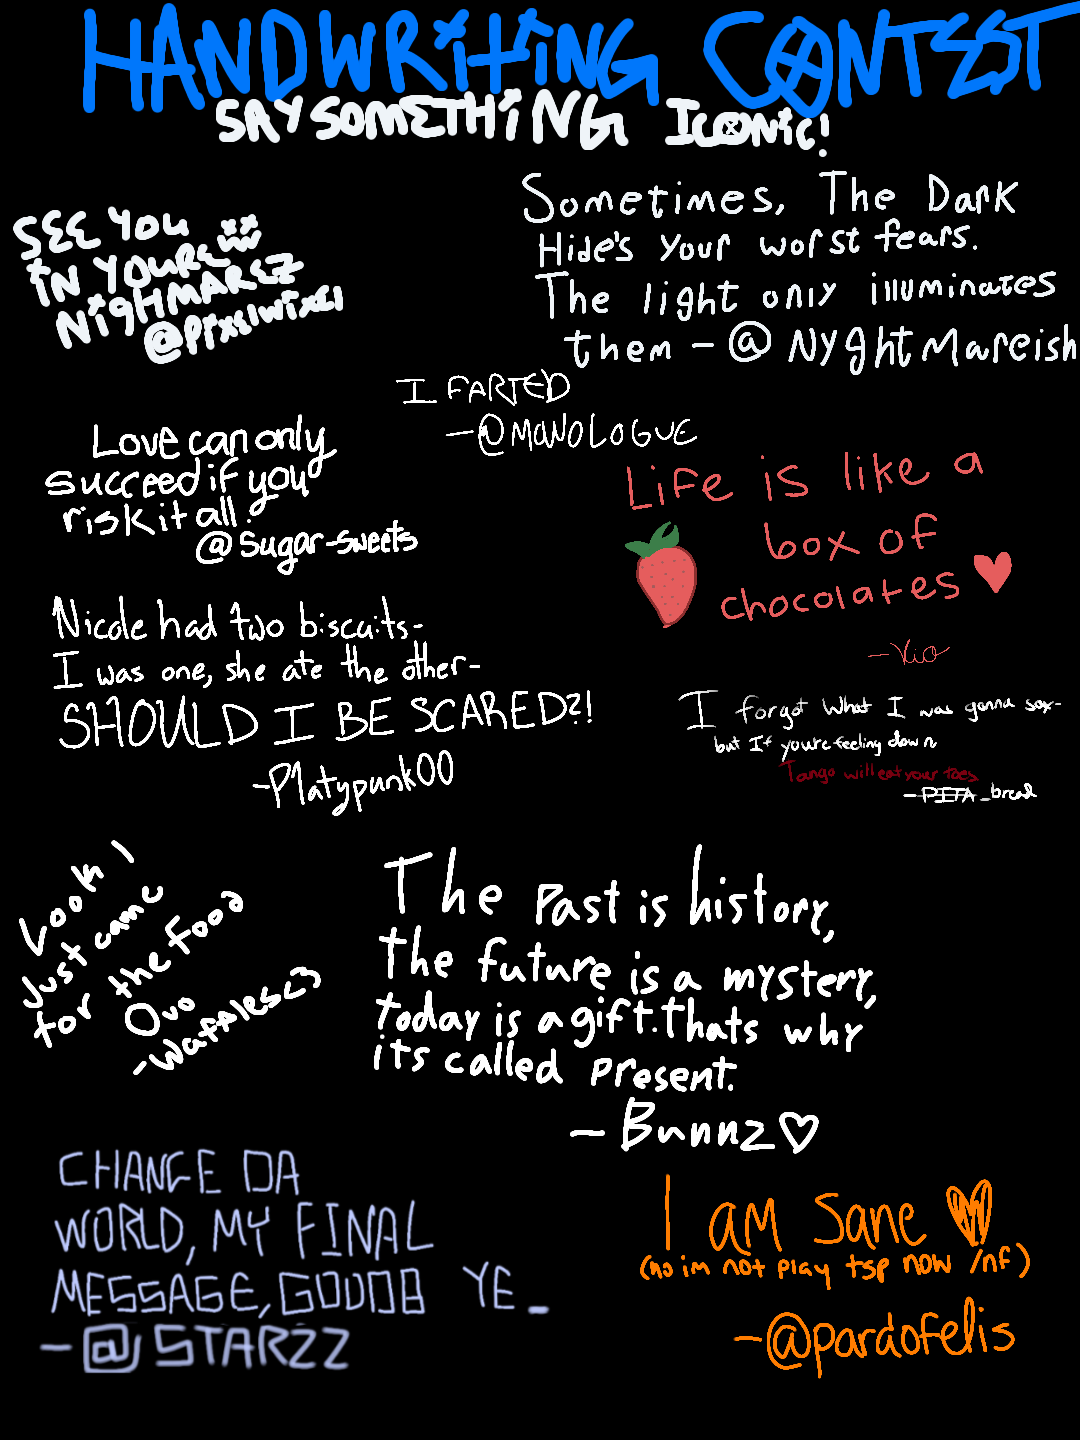 HANDWRiTiNG CONTEST
SAY SOMETHiNG ICONiC!
SEE YOU
iN YOURE
NiGHTMAREZ
Sometimes, The Dark
Hide's your worst fears.
The light only illuminates
them - @ NyghtMareish
I FARTED
-@MONOLOGUE
Love can only
succeed if you
risk it all.
@Sugar-sweets
Life is like a
box of
chocolates ♥
Nicole had two biscuits-
I was one, she ate the other-
SHOULD I BE SCARED?!
-Platypunk00
I forgot What I was gonna say-
but If you're feeling down
Tango will eat your toes
-PITA_bread
Look I
Just came
for the Food
OvO
-Waffles<3
The Past is history,
the future is a mystery,
today is a gift. thats why
its called present.
- Bunnz♡
CHANGE DA
WORLD, MY FINAL
MESSAGE, GOUDB YE_
-@STARZZ
I aM Sane ♥
(no im not play tsp now /nf)
-@pardofelis